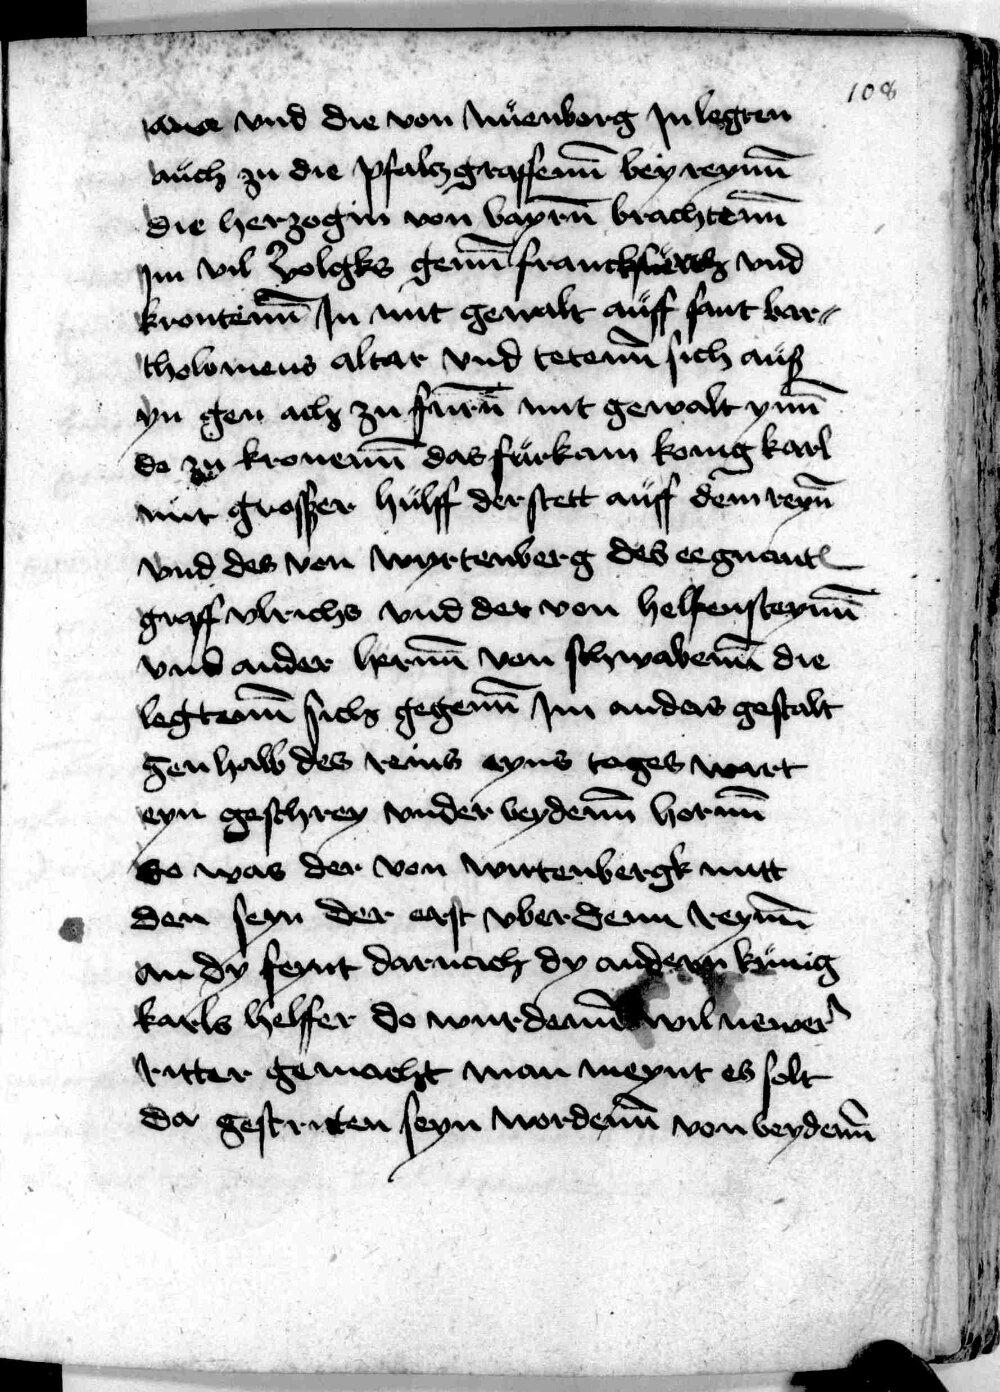 108
vnd die von Nuͤenborg In legten
auͤch zu die pfalczgraffenn̄ bey reynn̄
die herzogin von bayrn̄ brachtenn̄
Im vil volgks genn̄ franckfuͤrth vnd
krontenn̄ In mit gewalt auͤff sant bar⸗
tholomeus altar vnd tetenn̄ sich auͤß
yn gen ach zu furn̄ mit gewalt ynn̄
do zu kronenn̄ das fuͤrkam konig karl
mit grosßer huͤlff der stett auͤff dem reyn̄
vnd des von wyrtenberg des eegnant
graff vlrichs vnd der von helfensteynn̄
vnd ander hernn̄ von schwabenn̄ die
legtenn̄ sich gegenn̄ Im anders gestalt
genhalb des reins eyns tages wart
eyn geschrey vnder beydenn̄ hornn̄
so was der von wirtenbergk mitt
den seyn der erst vber denn reynn̄
an dy feynt darnach dy andern kuͤnig
karls helffer do wurdenn̄ vil newer
ritter gemacht man meynt es solt
da gestriten seyn wordenn̄ von beydenn̄